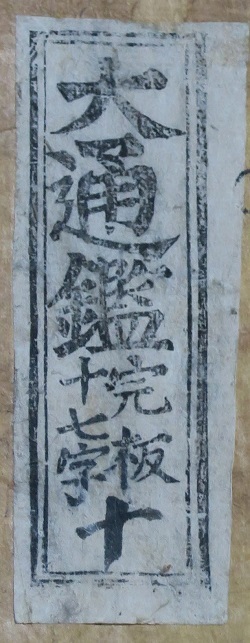 大通鑑
完板
十七字
十